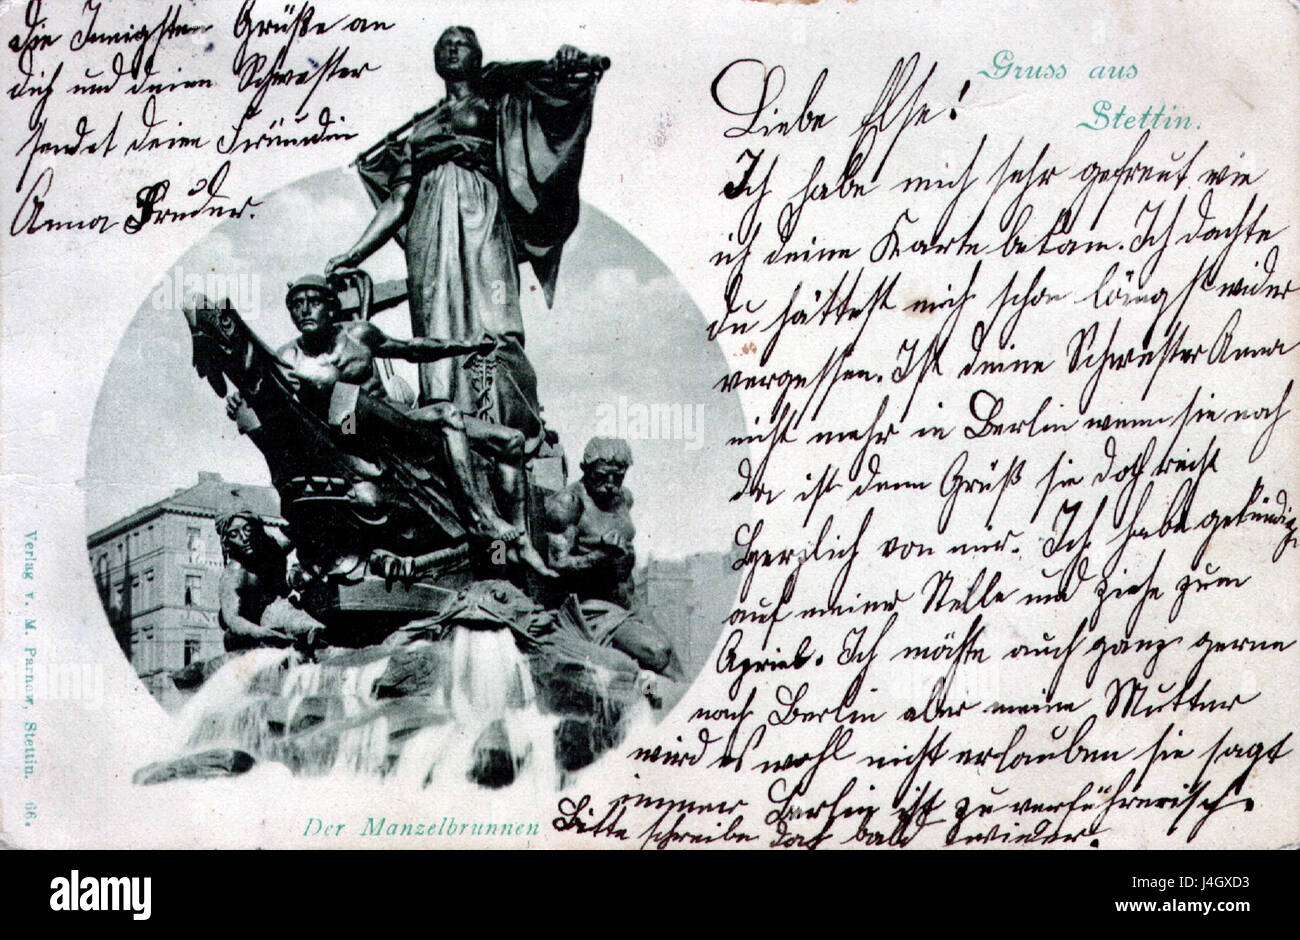 Gruss aus
Stettin.
Liebe Else!
Ich habe mich sehr gefreut wie
ich deine Karte bekam. Ich dachte
du hättest mich schon längst wider
vergessen. Ist deine Schwester Anna
nicht mehr in Berlin wenn sie noch
da ist dann Grüß sie doch recht
Herzlich von mir. Ich habe gekündigt
auf meiner Stelle und ziehe zum
April. Ich möchte auch ganz gerne
nach Berlin aber meine Mutter
wird es wohl nicht erlauben sie sagt
immer Berlin ist zu verführerisch.
Bitte schreibe doch bald wieder.
Die Innigsten Grüße an
dich und deine Schwester
sendet deine Freundin
Anna Bruder.
Der Manzelbrunnen
Verlag v. M. Parnow, Stettin. 66.
alamy
alamy
alamy
alamy
a
a
a
alamy
Image ID: J4GXD3
www.alamy.com